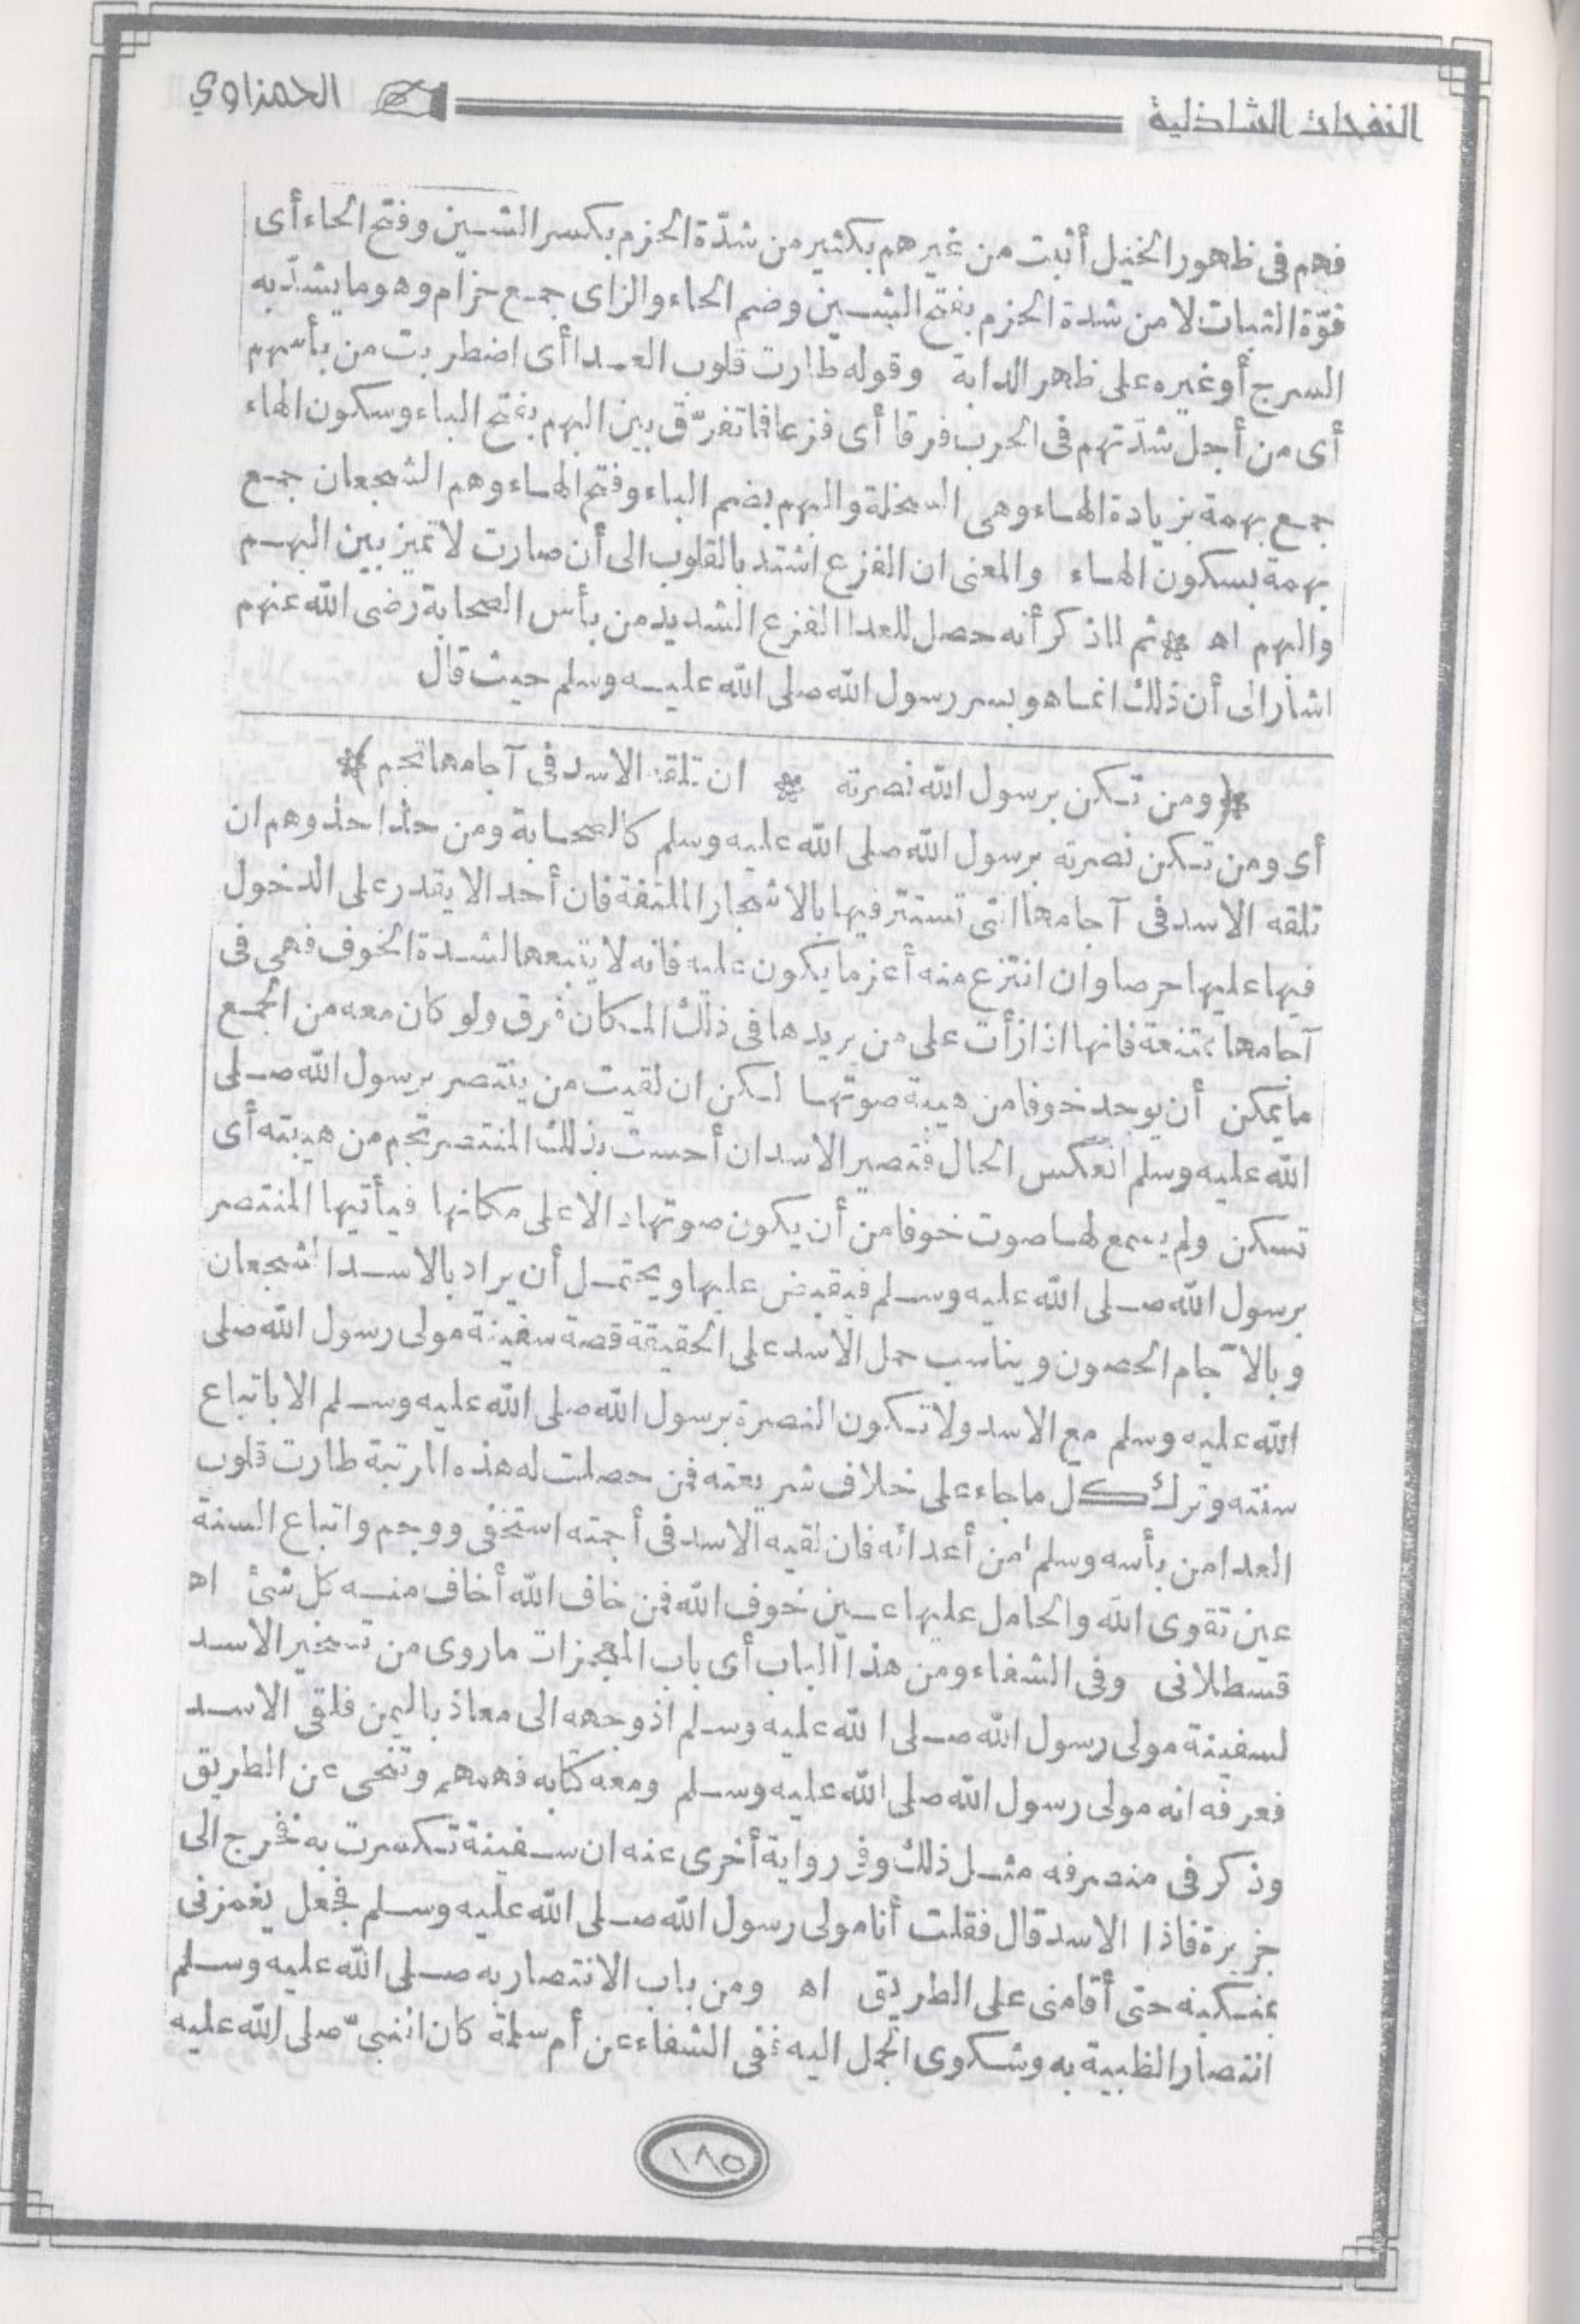 النفحات الشاذلية
الحمزاوي
فهم فى ظهور الخيل أثبت من غيرهم بكثير من شدّة الحزم بكسر الشين وفتح الحاء أى
قوّة الثبات لا من شدة الحزم بفتح الشين وضم الحاء والزاى جمع حزام وهو ما يشدّ به
السرج أو غيره على ظاهر الدابة وقوله طارت قلوب العدا أى اضطربت من بأسهم
أى من أجل شدّتهم فى الحرب فرقا أى فزعا فما تفرّق بين البهم بفتح الباء وسكون الهاء
جمع بهمة بزيادة الهاء وهى السخلة والبهم بضم الباء وفتح الهاء وهم الشجعان جمع
بهمة بسكون الهاء والمعنى ان الفزع اشتد بالقلوب الى أن صارت لا تميز بين البهم
والبهم اه * ثم لما ذكر أنه حصل للعدا الفزع الشديد من بأس الصحابة رضى الله عنهم
اشار الى أن ذلك انما هو بسر رسول الله صلى الله عليه وسلم حيث قال
*(ومن تكن برسول الله نصرته * ان تلقه الاسد فى آجامها تجم)*
أى ومن تكن نصرته برسول الله صلى الله عليه وسلم كالصحابة ومن حذا حذوهم ان
تلقه الاسد فى آجامها التى تستتر فيها بالاشجار الملتفة فان أحدا لا يقدر على الدخول
فيها عليها حرصا وان انتزع منه أعز ما يكون عليه فانه لا يتبعها لشدة الخوف فهى فى
آجامها ممتنعة فانها اذا زأرت على من يريدها فى ذلك المكان فرق ولو كان معه من الجمع
ما يمكن أن يوجد خوفا من هيبة صوتها لكن ان لقيت من ينتصر برسول الله صلى
الله عليه وسلم انعكس الحال فتصير الاسد ان أحست بذلك المنتصر تجم من هيبته أى
تسكن ولم يسمع لها صوت خوفا من أن يكون صوتها دالا على مكانها فيأتيها المنتصر
برسول الله صلى الله عليه وسلم فيقبض عليها ويحتمل أن يراد بالاسد الشجعان
وبالآجام الحصون ويناسب حمل الاسد على الحقيقة قصة سفينة مولى رسول الله صلى
الله عليه وسلم مع الاسد ولا تكون النصرة برسول الله صلى الله عليه وسلم الا باتباع
سنته وترك كل ما جاء على خلاف شريعته فمن حصلت له هذه المرتبة طارت قلوب
العدا من بأسه وسلم من أعدائه فان لقيه الاسد فى أجمته استخفى ووجم واتباع السنة
عين تقوى الله والحامل عليها عين خوف الله فمن خاف الله أخاف منه كل شئ اه
قسطلانى وفى الشفاء ومن هذا الباب أى باب المعجزات ما روى من تسخير الاسد
لسفينة مولى رسول الله صلى الله عليه وسلم اذ وجهه الى معاذ باليمن فلقى الاسد
فعرفه انه مولى رسول الله صلى الله عليه وسلم ومعه كتابه فهمهم وتنحى عن الطريق
وذكر فى منصرفه مثل ذلك وفى رواية أخرى عنه ان سفينة تكسرت به فخرج الى
جزيرة فاذا الاسد قال فقلت أنا مولى رسول الله صلى الله عليه وسلم فجعل يغمزنى
بمنكبه حتى أقامنى على الطريق اه ومن باب الانتصار به صلى الله عليه وسلم
انتصار الظبية به وشكوى الجمل اليه ففى الشفاء عن أم سلمة كان النبىّ صلى الله عليه
١٨٥